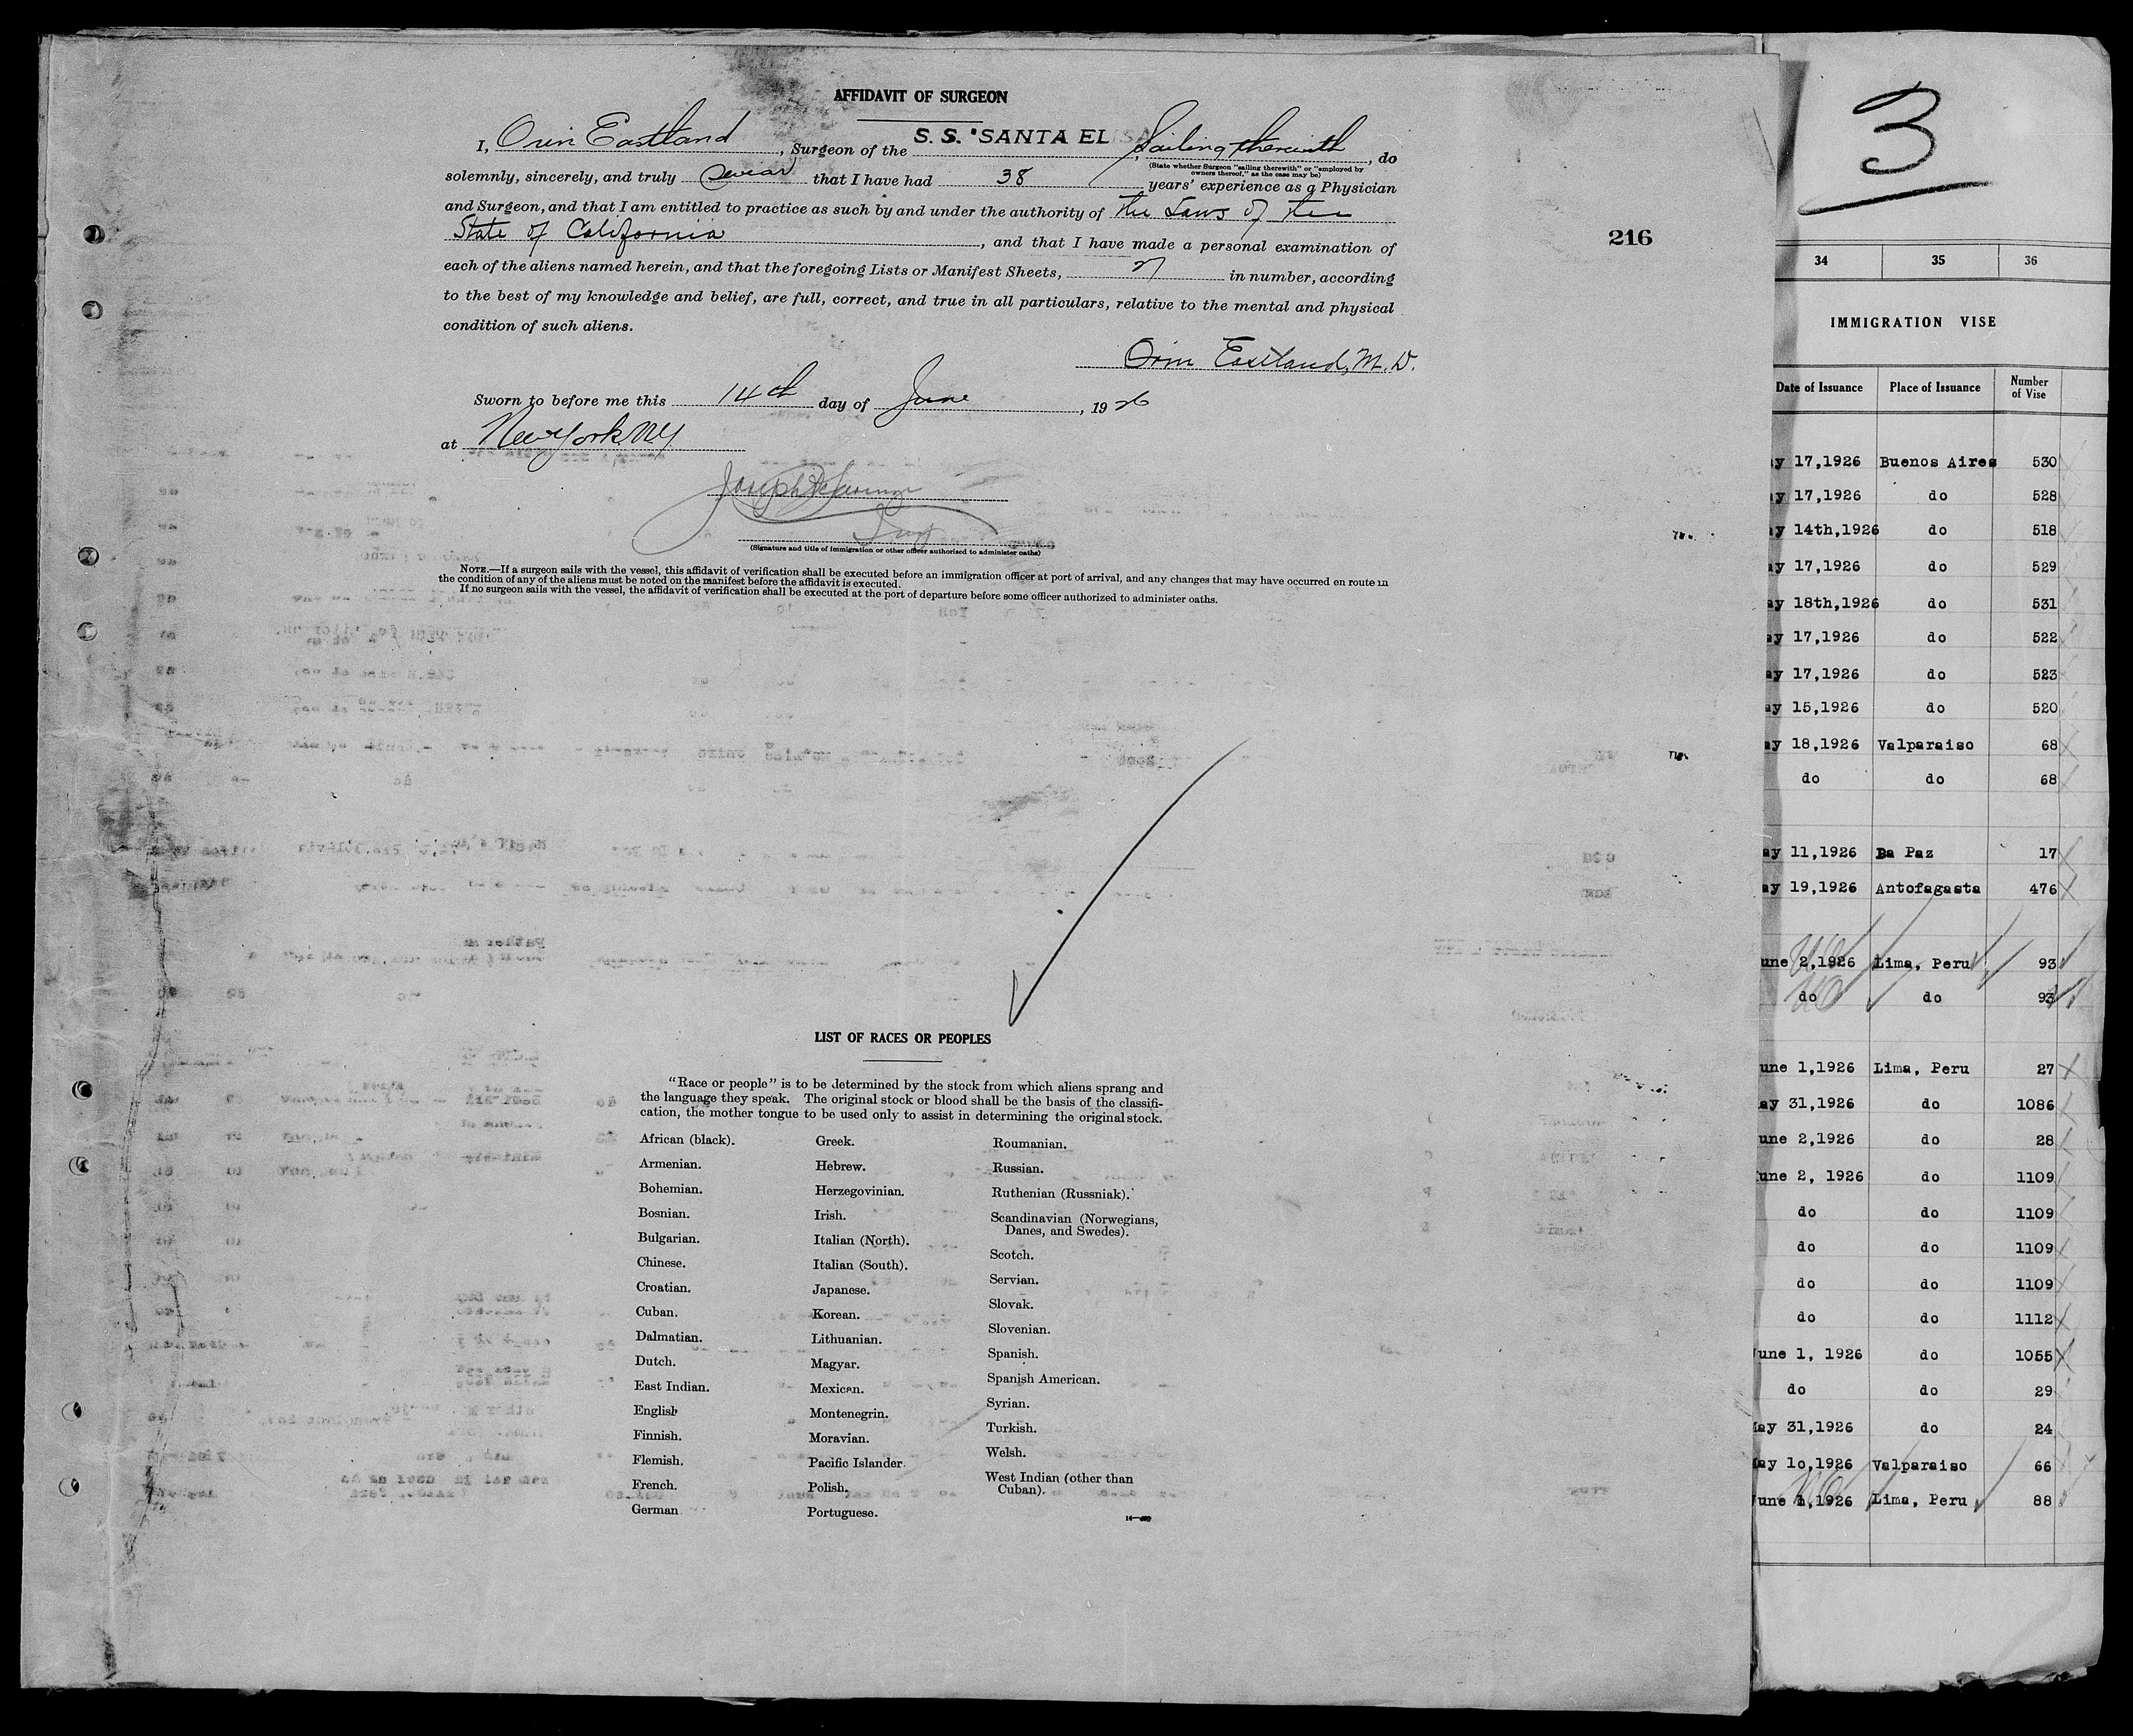 AFFIDAVIT OF SURGEON
I, Orin Eastland, Surgeon of the S. S. "SANTA ELISA, Sailing therewith, do
(State whether Surgeon "sailing therewith" or "employed by
owners thereof," as the case may be)
solemnly, sincerely, and truly swear that I have had 38 years' experience as a Physician
and Surgeon, and that I am entitled to practice as such by and under the authority of the Laws of the
State of California, and that I have made a personal examination of
each of the aliens named herein, and that the foregoing Lists or Manifest Sheets, in number, according
to the best of my knowledge and belief, are full, correct, and true in all particulars, relative to the mental and physical
condition of such aliens.
Orin Eastland, M. D.
Sworn to before me this 14th day of June, 1926
at New York N.Y.
Joseph
Insp
(Signature and title of immigration or other officer authorized to administer oaths)
NOTE.—If a surgeon sails with the vessel, this affidavit of verification shall be executed before an immigration officer at port of arrival, and any changes that may have occurred en route in
the condition of any of the aliens must be noted on the manifest before the affidavit is executed.
If no surgeon sails with the vessel, the affidavit of verification shall be executed at the port of departure before some officer authorized to administer oaths.
216
LIST OF RACES OR PEOPLES
"Race or people" is to be determined by the stock from which aliens sprang and
the language they speak. The original stock or blood shall be the basis of the classifi-
cation, the mother tongue to be used only to assist in determining the original stock.
African (black).
Armenian.
Bohemian.
Bosnian.
Bulgarian.
Chinese.
Croatian.
Cuban.
Dalmatian.
Dutch.
East Indian.
English
Finnish.
Flemish.
French.
German
Greek.
Hebrew.
Herzegovinian.
Irish.
Italian (North).
Italian (South).
Japanese.
Korean.
Lithuanian.
Magyar.
Mexican.
Montenegrin.
Moravian.
Pacific Islander.
Polish.
Portuguese.
Roumanian.
Russian.
Ruthenian (Russniak).
Scandinavian (Norwegians,
Danes, and Swedes).
Scotch.
Servian.
Slovak.
Slovenian.
Spanish.
Spanish American.
Syrian.
Turkish.
Welsh.
West Indian (other than
Cuban).
3
34 35 36
IMMIGRATION VISE
Date of Issuance Place of Issuance Number of Vise
ay 17,1926 Buenos Aires 530
ay 17,1926 do 528
ay 14th,1926 do 518
ay 17,1926 do 529
ay 18th,1926 do 531
ay 17,1926 do 522
ay 17,1926 do 523
ay 15,1926 do 520
ay 18,1926 Valparaiso 68
do do 68
ay 11,1926 La Paz 17
ay 19,1926 Antofagasta 476
une 2,1926 Lima, Peru 93
do do 93
une 1,1926 Lima, Peru 27
ay 31,1926 do 1086
une 2,1926 do 28
une 2, 1926 do 1109
do do 1109
do do 1109
do do 1109
do do 1112
June 1, 1926 do 1055
do do 29
May 31,1926 do 24
May 10,1926 Valparaiso 66
June 1,1926 Lima, Peru 88